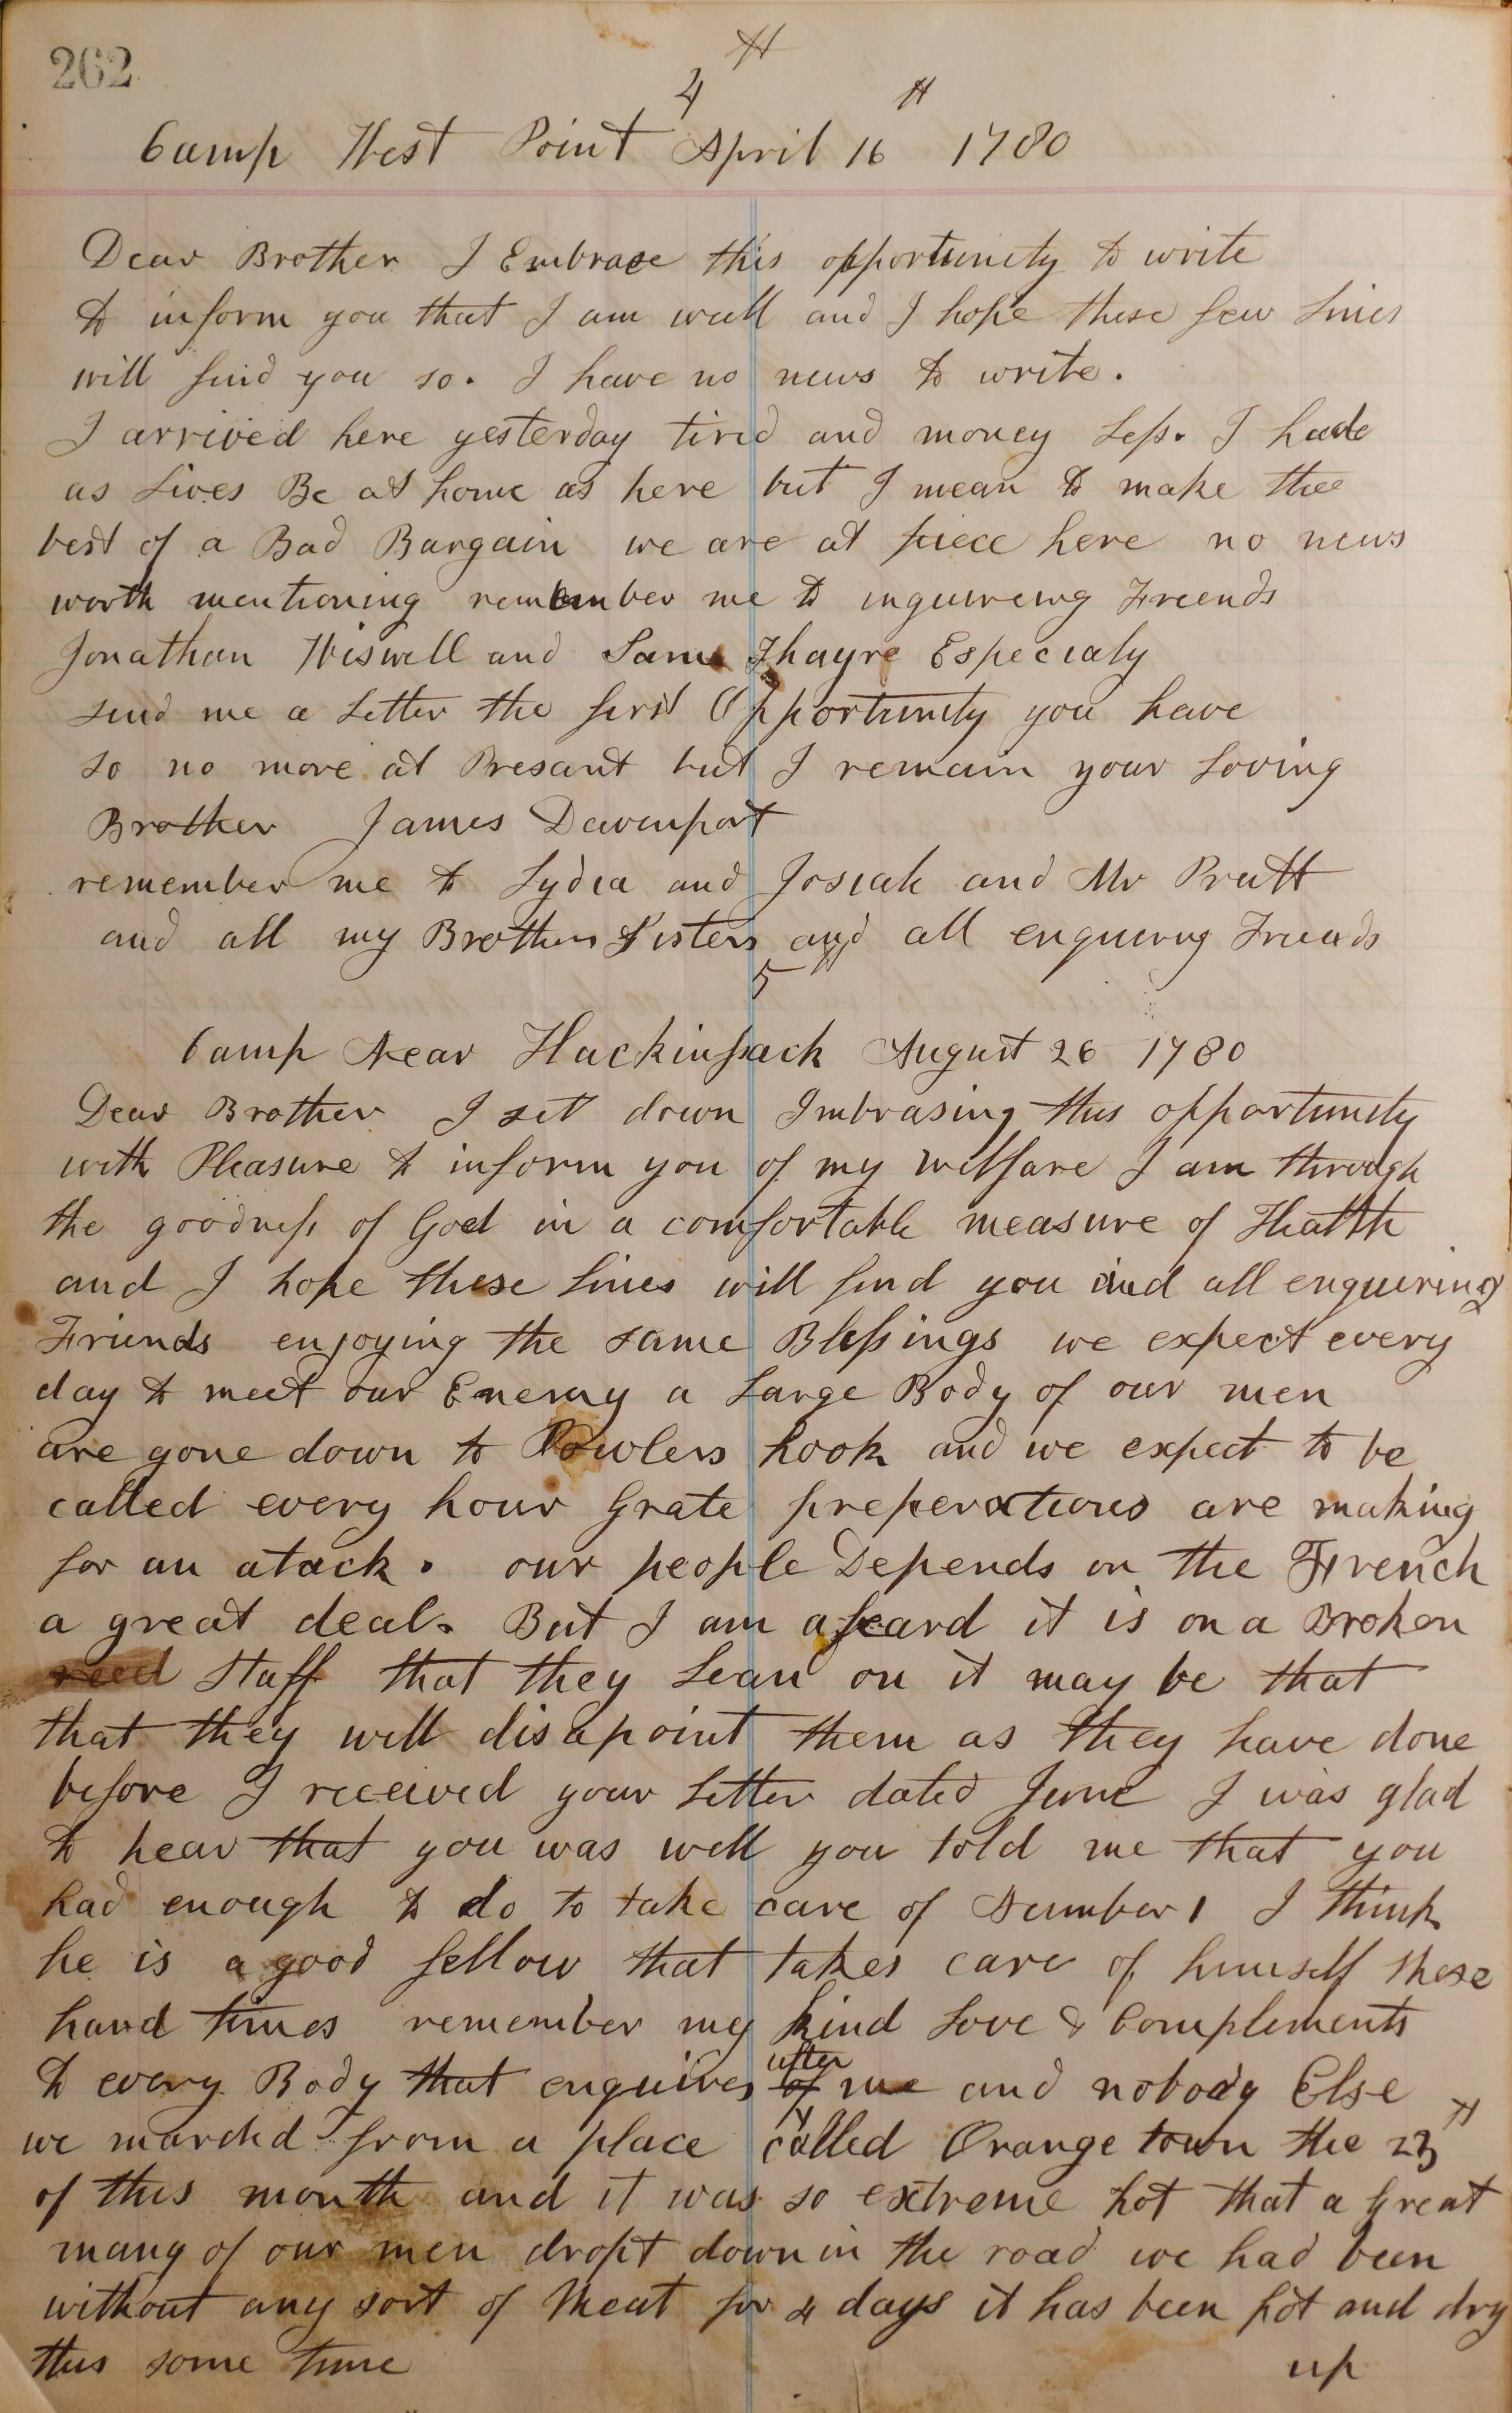 262
4
Camp West Point April 16 th 1780
Dear Brother I Embrace this opportunity to write
to inform you that I am well and I hope these few Lines
will find you so. I have no news to write.
I arrived here yesterday tired and money Less. I had
as Lives Be at home as here but I mean to make thee
best of a Bad Bargain we are at piece here no news
worth mentioning remember me to inquireing Freends
Jonathan Wiswell and Sam Thayre Especialy
send me a Letter the first Opportunity you have
so no more at Presant but I remain your Loving
Brother James Davenport
remember me to Lydia and Josiah and Mr Pratt
and all my Brothers Sisters and all enquiring Friends
5
Camp Near Hackinsack August 26 1780
Dear Brother I set down Imbrasing this opportunity
with Pleasure to inform you of my welfare I am through
the goodness of God in a comfortable measure of Health
and I hope these Lines will find you and all enquiring
Friends enjoying the same Blessings we expect every
day to meet our Enemy a Large Body of our men
are gone down to Powlers hook and we expect to be
called every hour Grate preperations are making
for an atack. our people Depends on the French
a great deal. But I am afeard it is on a Broken
reed Staff that they Lean on it may be that
that they will disapoint them as they have done
before I received your Letter dated June I was glad
to hear that you was well you told me that you
had enough to do to take care of Number 1 I think
he is a good fellow that takes care of himself these
hard times remember my kind Love & Complements
to every Body that enquires of after me and nobody Else
we marchd from a place called Orange town the 23 th
of this month and it was so extreme hot that a great
many of our men dropt down in the road we had been
without any sort of Meat for 4 days it has been hot and dry
this some time
up